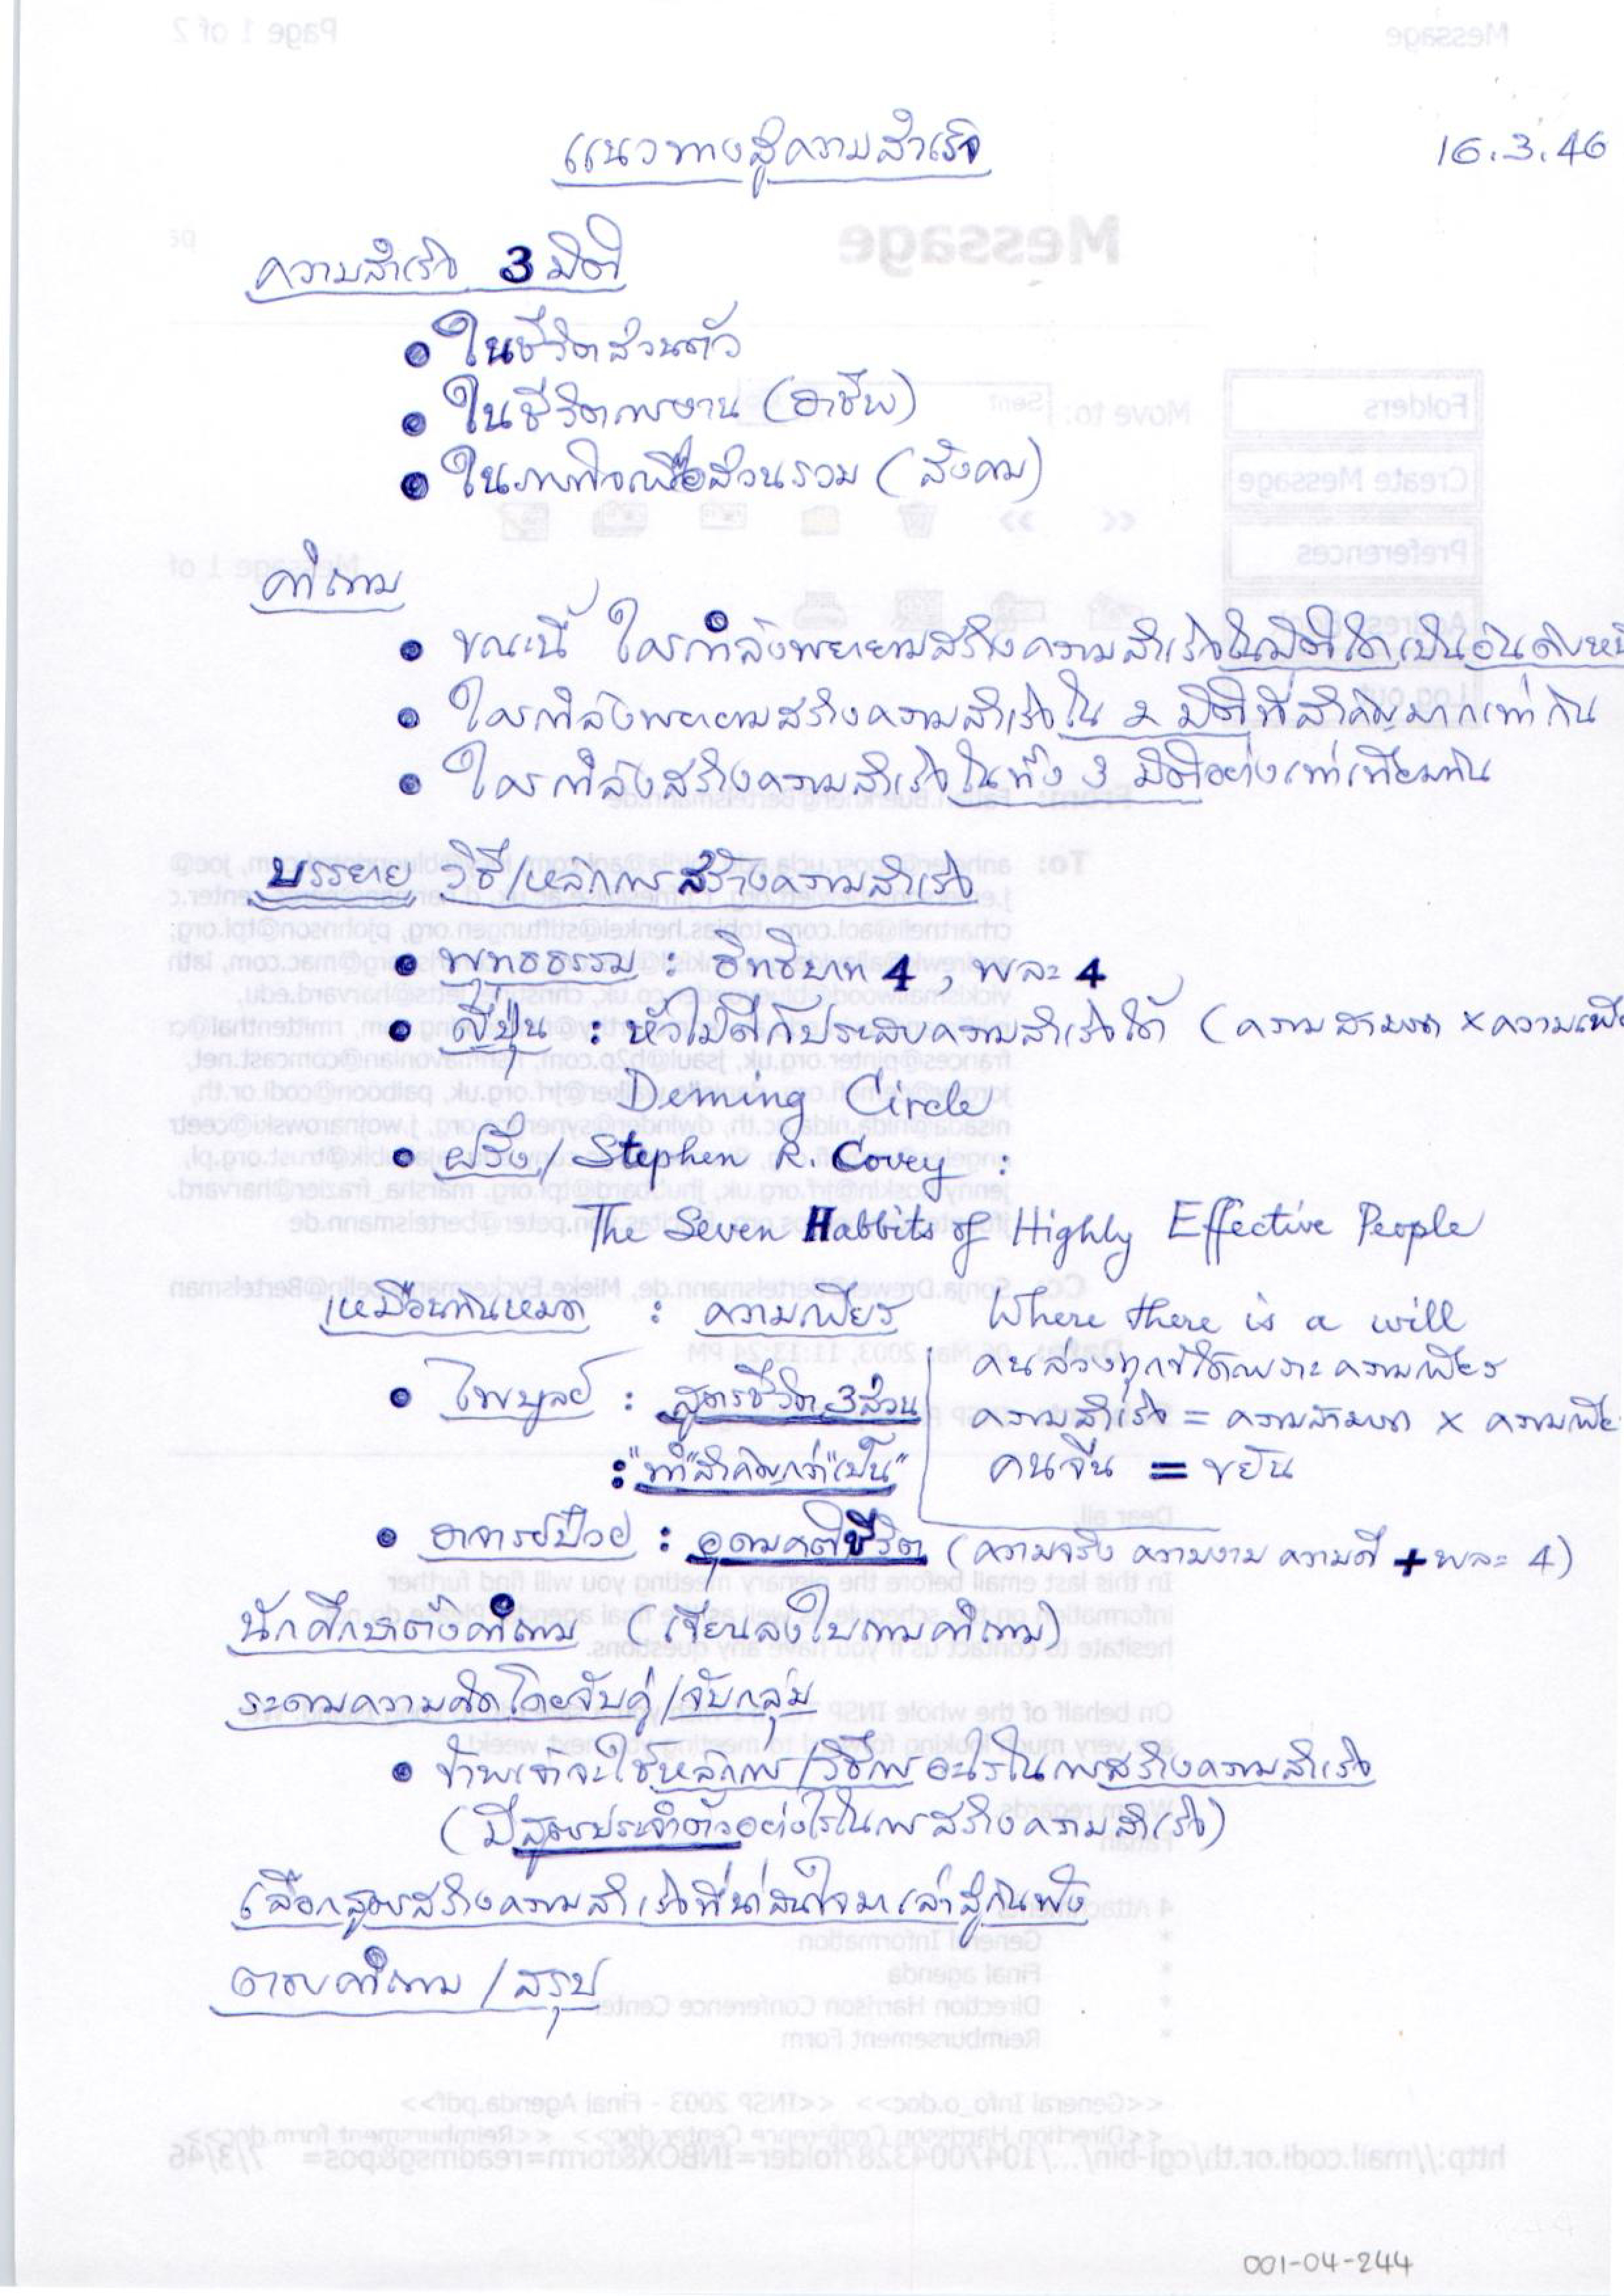 แนวทางสู่ความสำเร็จ
16.3.46
ความสำเร็จ 3 มิติ
• ในชีวิตส่วนตัว
• ในชีวิตการงาน (อาชีพ)
• ในภารกิจเพื่อส่วนรวม (สังคม)
คำถาม
• ขณะนี้ ใครกำลังพยายามสร้างความสำเร็จในมิติใดเป็นอันดับหนึ
• ใครกำลังพยายามสร้างความสำเร็จใน 2 มิติที่สำคัญมากเท่ากัน
• ใครกำลังสร้างความสำเร็จในทั้ง 3 มิติอย่างเท่าเทียมกัน
บรรยาย วิธี/หลักการสร้างความสำเร็จ
• พุทธธรรม : อิทธิบาท 4, พละ 4
• ญี่ปุ่น : หัวไม่ดีก็ประสบความสำเร็จได้ (ความสามารถ x ความเพี
Deming Circle
• ฝรั่ง/Stephen R. Covey :
The Seven Habbits of Highly Effective People
เหมือนกันหมด : ความเพียร Where there is a will
คนล่วงทุกข์ได้เพราะความเพียร
• ไพบูลย์ : สูตรชีวิต 3 ส่วน ความสำเร็จ = ความสามารถ x ความเพีย
: "ทำ" สำคัญกว่า "เป็น" คนจีน = ขยัน
• อาจารย์ป๋วย : อุดมคติชีวิต (ความจริง ความงาม ความดี + พละ 4)
นักศึกษาตั้งคำถาม (เขียนลงใบถามคำถาม)
ระดมความคิดโดยจับคู่/จับกลุ่ม
• ข้าพเจ้าจะใช้หลักการ/วิธีการอะไรในการสร้างความสำเร็จ
(มีสูตรประจำตัวอย่างไรในการสร้างความสำเร็จ)
เลือกสูตรสร้างความสำเร็จที่น่าสนใจมาเล่าสู่กันฟัง
ตอบคำถาม / สรุป
001-04-244